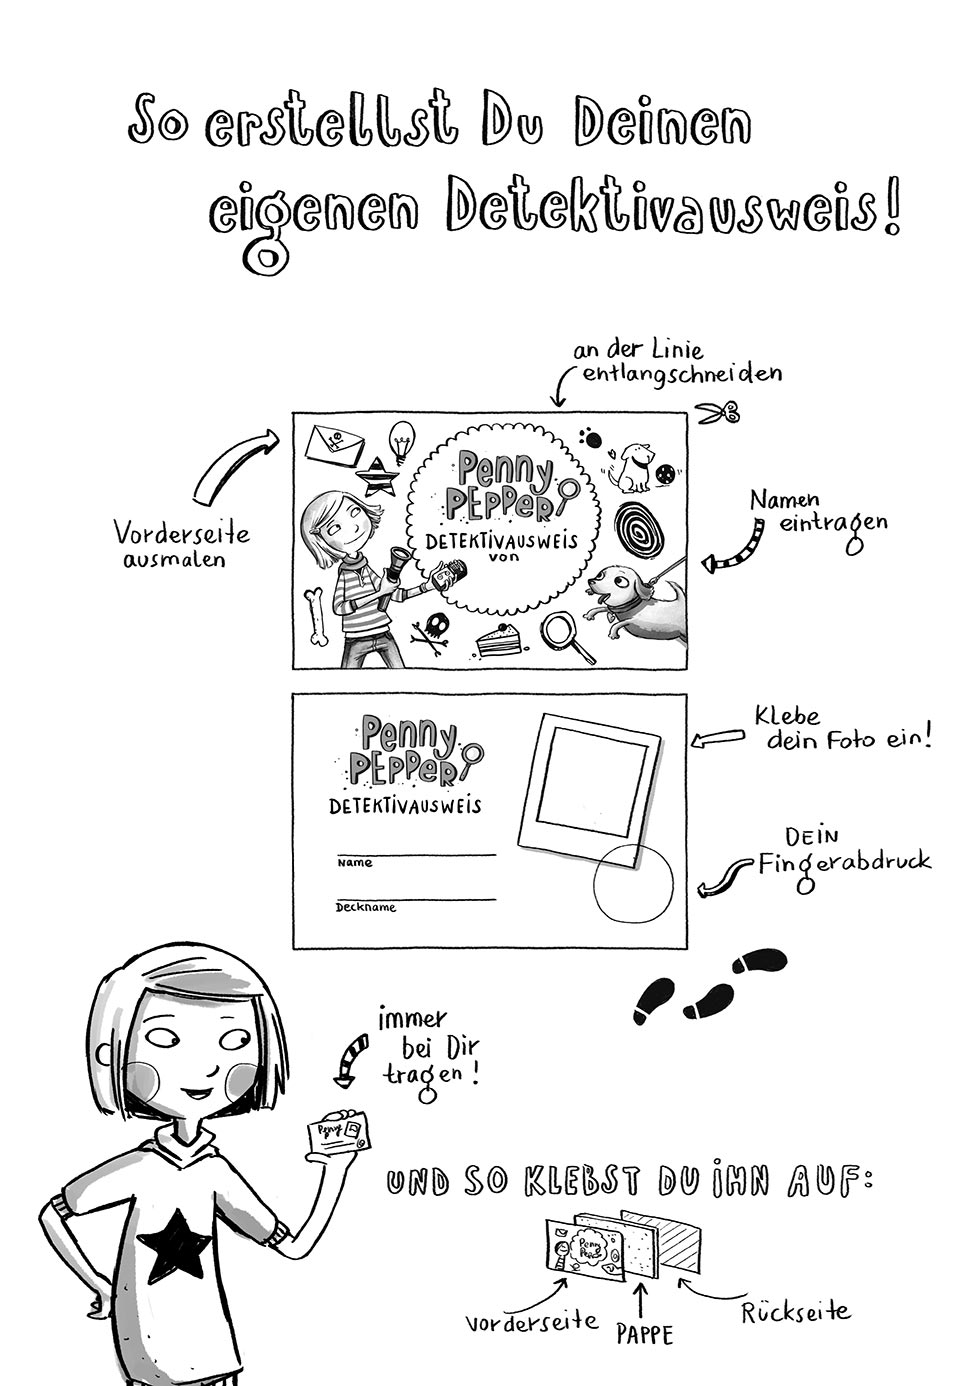 So erstellst Du Deinen
eigenen Detektivausweis!
an der Linie
entlangschneiden
Vorderseite
ausmalen
Penny
PEPPER
DETEKTIVAUSWEIS
von
Namen
eintragen
Klebe
dein Foto ein!
Penny
PEPPER
DETEKTIVAUSWEIS
Name
Deckname
DEIN
Fingerabdruck
immer
bei Dir
tragen!
Penny
UND SO KLEBST DU IHN AUF:
Penny
Pepper
Vorderseite
PAPPE
Rückseite